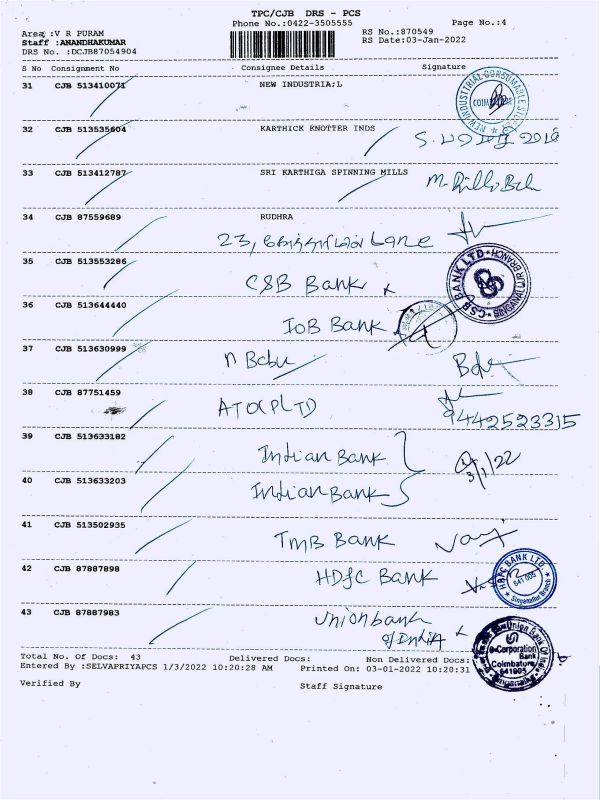 TPC/CJB DRS - PCS
Phone No.:0422-3505555 Page No.:4
Area :V R PURAM RS No.:870549
Staff :ANANDHAKUMAR RS Date:03-Jan-2022
DRS No. :DCJB87054904
S No Consignment No Consignee Details Signature
31 CJB 513410071 NEW INDUSTRIA;L
32 CJB 513535604 KARTHICK KNOTTER INDS
33 CJB 513412787 SRI KARTHIGA SPINNING MILLS
34 CJB 87559689 RUDHRA
23, Lane
35 CJB 513553286
CSB Bank
CSB BANK LTD
36 CJB 513644440
IOB Bank
37 CJB 513630999
n Babu
38 CJB 87751459
9442523315
39 CJB 513633182
Indian Bank
3/1/22
40 CJB 513633203
Indian Bank
41 CJB 513502935
TMB Bank
42 CJB 87887898
HDFC Bank
HDFC BANK LTD.
641 005
43 CJB 87887983
Union bank
of India
e-Corporation
Bank
Coimbatore
641005
Total No. Of Docs: 43 Delivered Docs: Non Delivered Docs:
Entered By :SELVAPRIYAPCS 1/3/2022 10:20:28 AM Printed On: 03-01-2022 10:20:31
Verified By Staff Signature